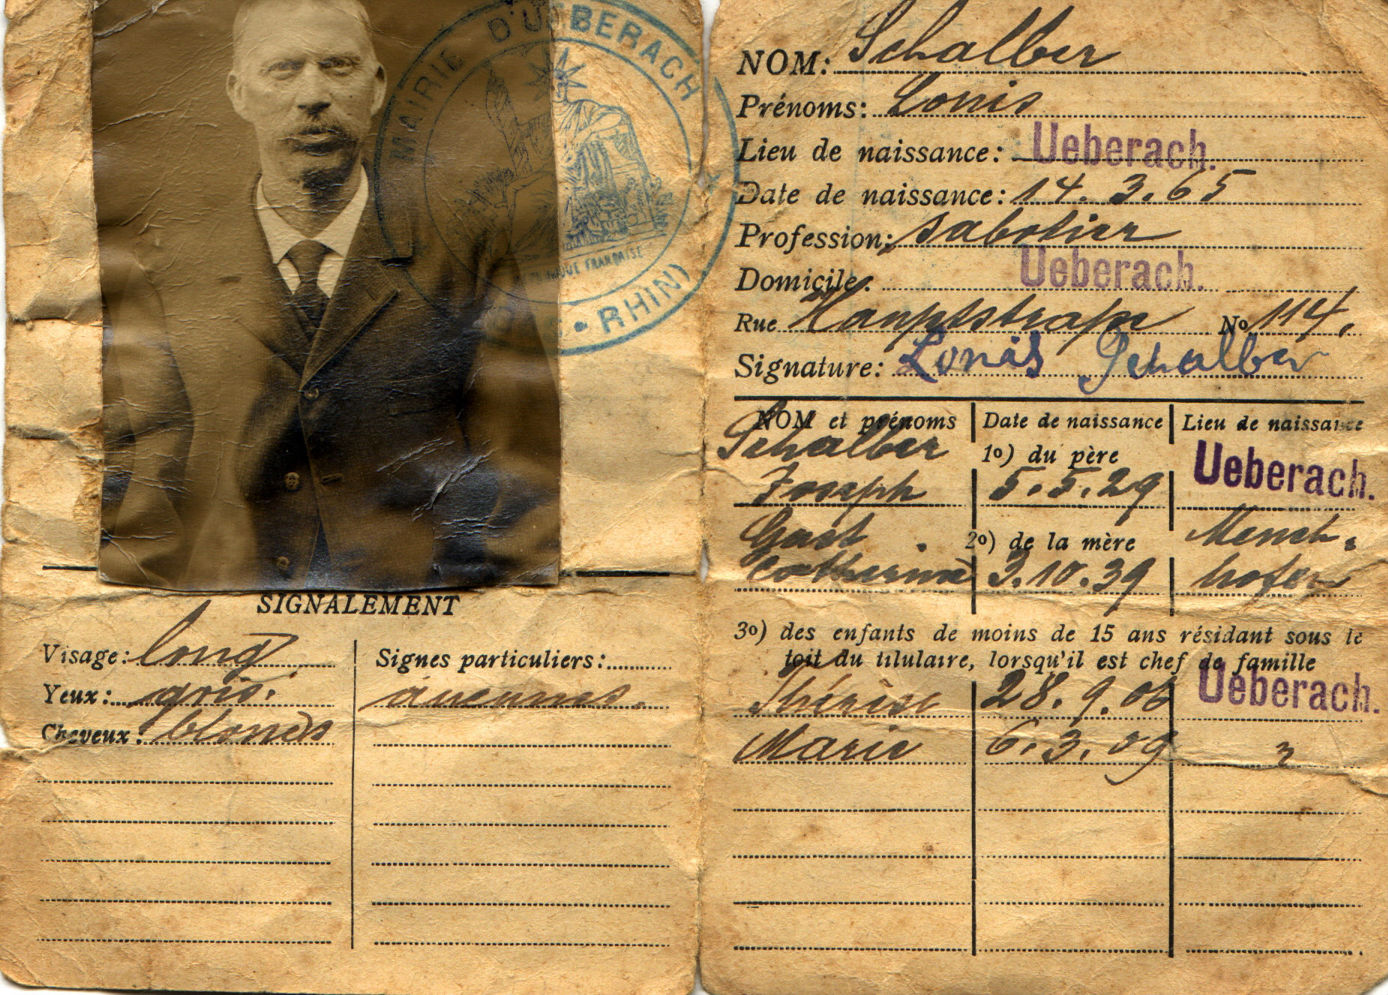 MAIRIE D'UEBERACH
RHIN)
SIGNALEMENT
Visage: long
Yeux: gris.
Cheveux: blonds
Signes particuliers:
aucunes.
NOM: Schalber
Prénoms: Louis
Lieu de naissance: Ueberach.
Date de naissance: 14.3.65
Profession: sabotier
Domicile: Ueberach.
Rue Hauptstraße No 114.
Signature: Louis Schalber
NOM et prénoms Date de naissance Lieu de naissance
Schalber 1o) du père Ueberach.
Joseph 5.5.29
2o) de la mère Mench.
Catherina 3.10.39 hofen
3o) des enfants de moins de 15 ans résidant sous le
toit du titulaire, lorsqu'il est chef de famille
Thérèse 28.9.06 Ueberach.
Marie 6.3.09 "